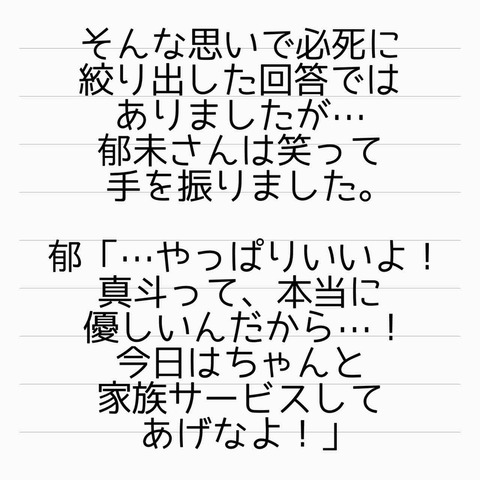 そんな思いで必死に
絞り出した回答では
ありましたが…
郁未さんは笑って
手を振りました。
郁「…やっぱりいいよ！
真斗って、本当に
優しいんだから…！
今日はちゃんと
家族サービスして
あげなよ！」